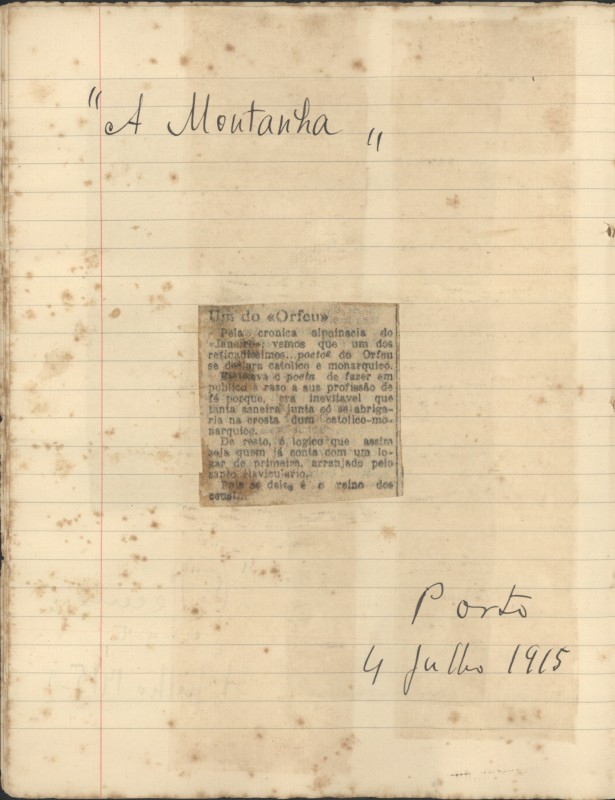 "A Montanha"
Um do «Orfeu»
Pela cronica alpoinacia do
«Janeiro», vemos que um dos
... poetas do Orfeu
se declara catolico e monarquico.
Escusava o poeta de fazer em
publico e raso a sua profissão de
fé porque, era inevitavel que
tanta asneira junta só se abriga-
ria na crosta dum catolico-mo-
narquico.
De resto, é logico que assim
seja quem já conta com um lo-
gar de primeira, arranjado pelo
santo clavicularío.
Pois se deles é o reino dos
ceus!...
Porto
4 Julho 1915